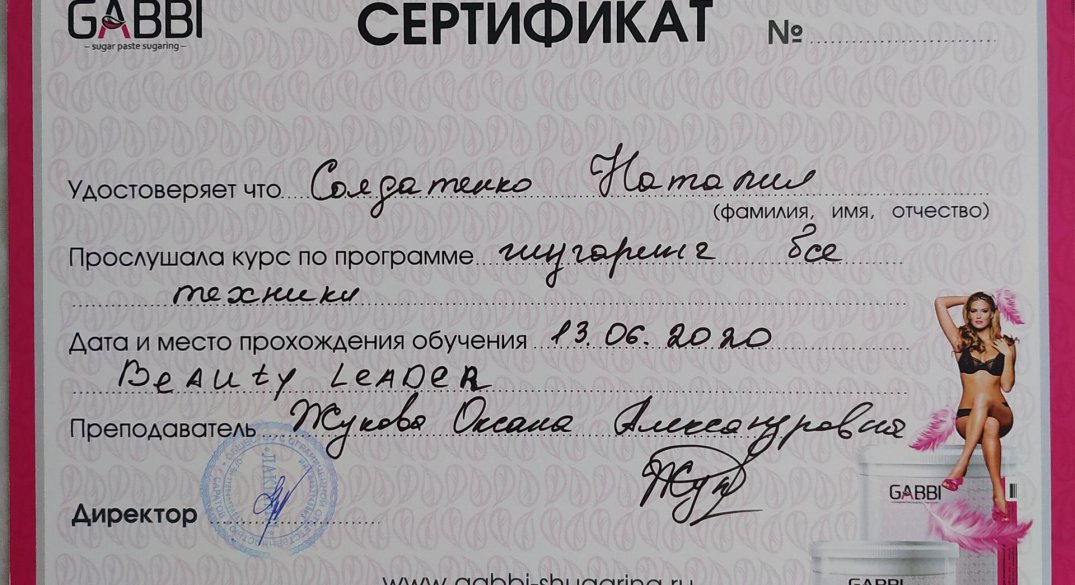 GABBI
– sugar paste sugaring –
СЕРТИФИКАТ №
Удостоверяет что Солдатенко Наталия
(фамилия, имя, отчество)
Прослушала курс по программе шугаринг все
техники
Дата и место прохождения обучения 13.06.2020
BEAUty LEADER
Преподаватель Жукова Оксана Александровна
Директор
GABBI
GABBI
www.gabbi-shugaring.ru